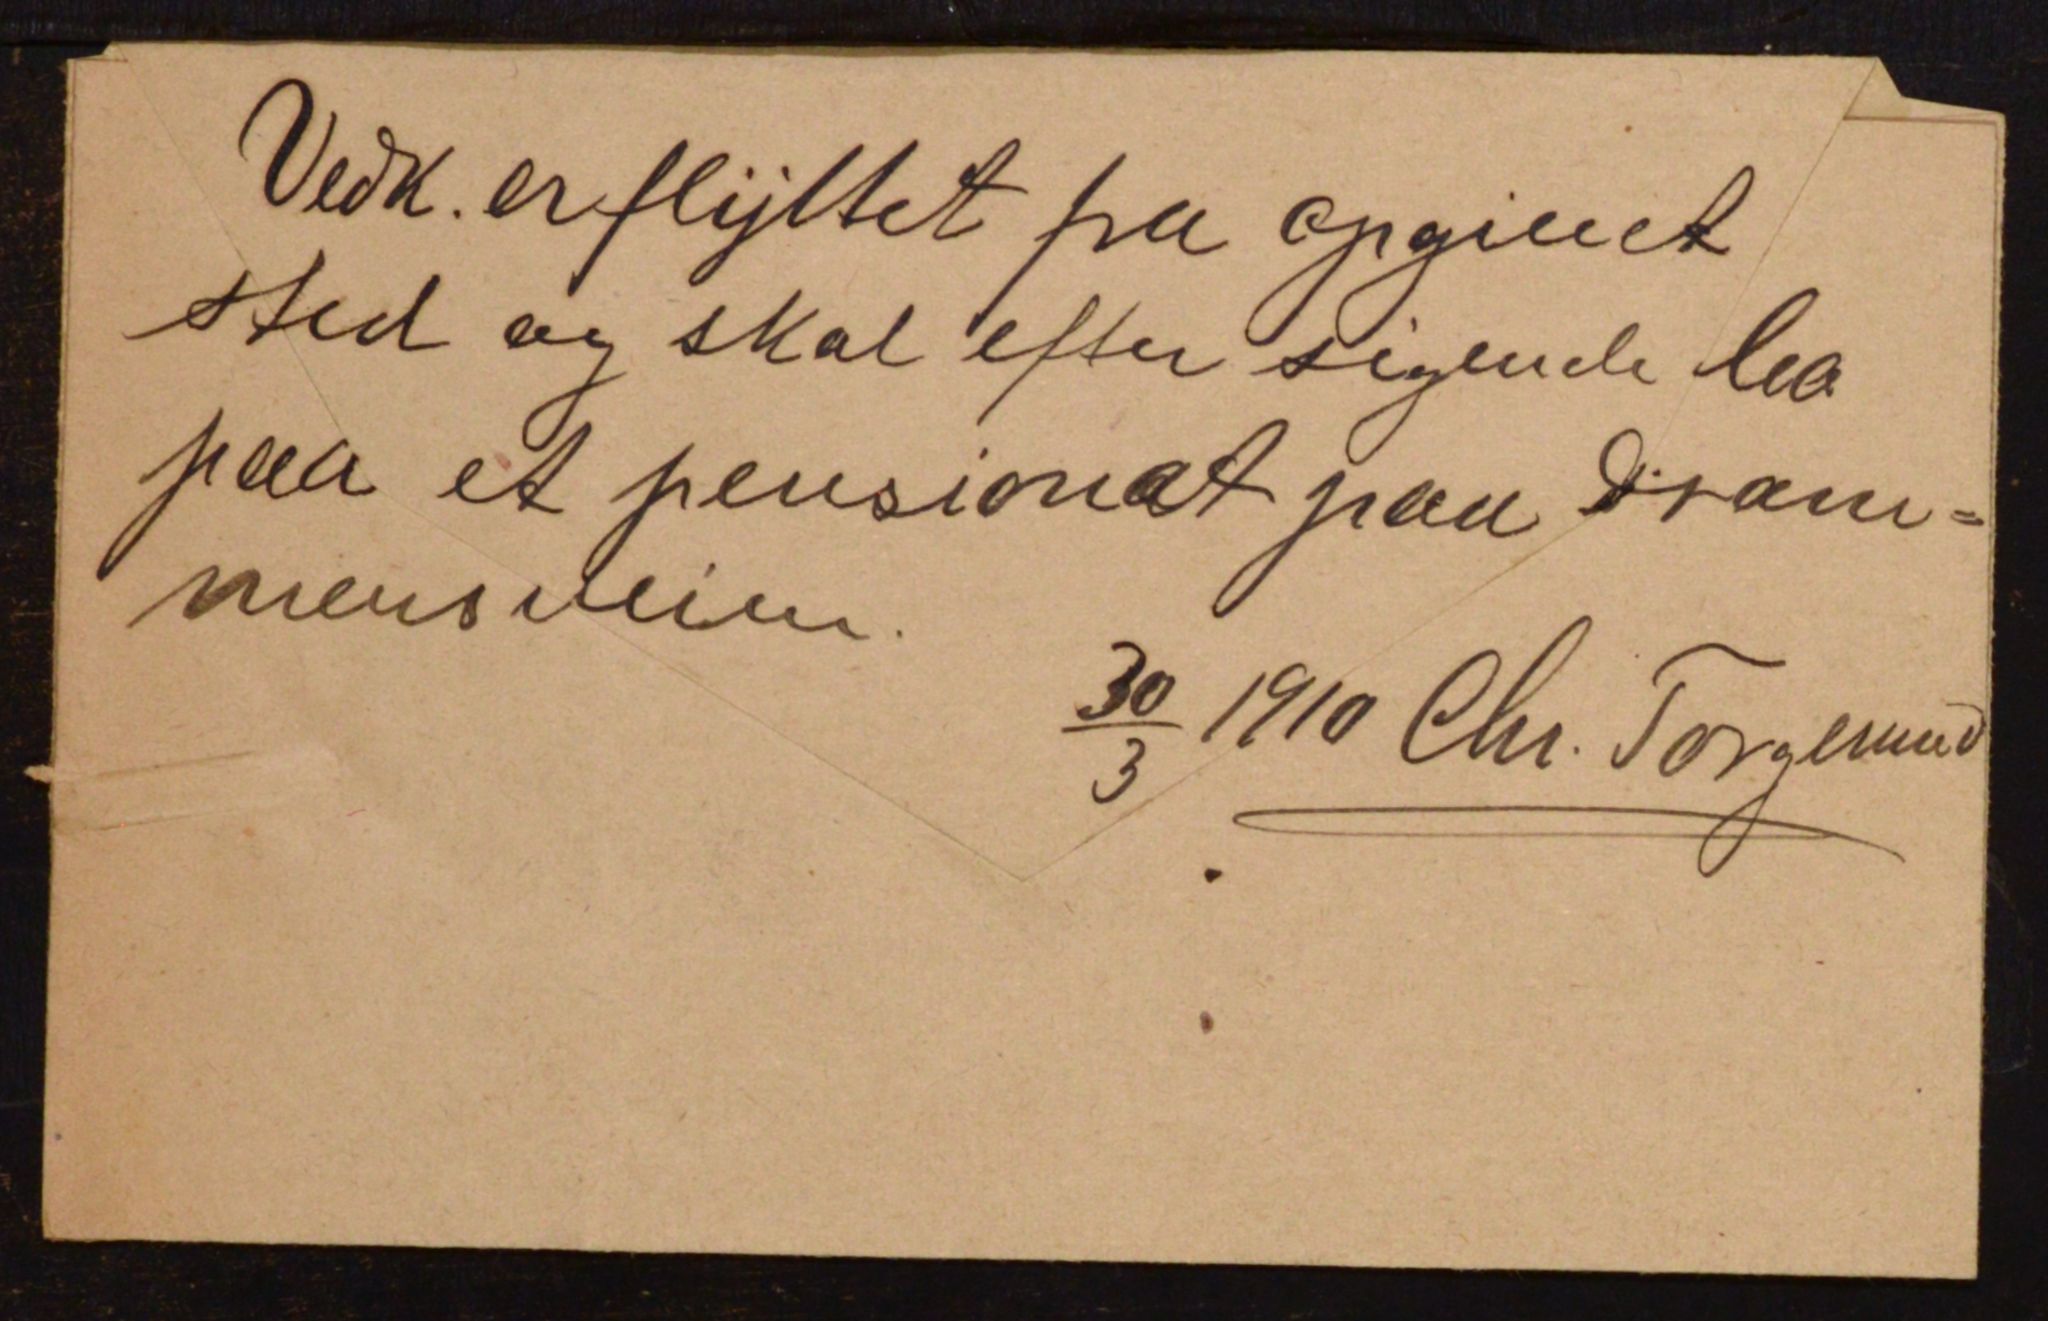 Vedk. er flyttet fra opgivet
sted og skal efter sigende bo
paa et pensionat paa Dram=
mensveien.
30/3 1910 Chr. Torgerund